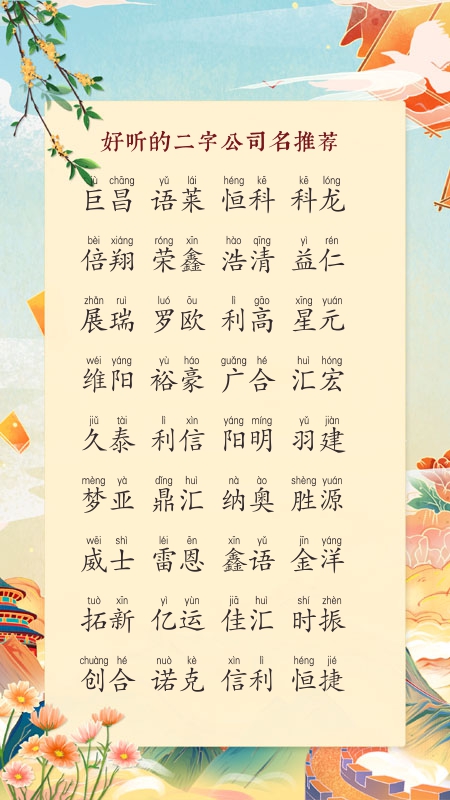 好听的二字公司名推荐
jù chāng yǔ lái héng kē kē lóng
巨昌 语莱 恒科 科龙
bèi xiáng róng xīn hào qīng yì rén
倍翔 荣鑫 浩清 益仁
zhǎn ruì luó ōu lì gāo xīng yuán
展瑞 罗欧 利高 星元
wéi yáng yù háo guǎng hé huì hóng
维阳 裕豪 广合 汇宏
jiǔ tài lì xìn yáng míng yǔ jiàn
久泰 利信 阳明 羽建
mèng yà dǐng huì nà ào shèng yuán
梦亚 鼎汇 纳奥 胜源
wēi shì léi ēn xīn yǔ jīn yáng
威士 雷恩 鑫语 金洋
tuò xīn yì yùn jiā huì shí zhèn
拓新 亿运 佳汇 时振
chuàng hé nuò kè xìn lì héng jié
创合 诺克 信利 恒捷